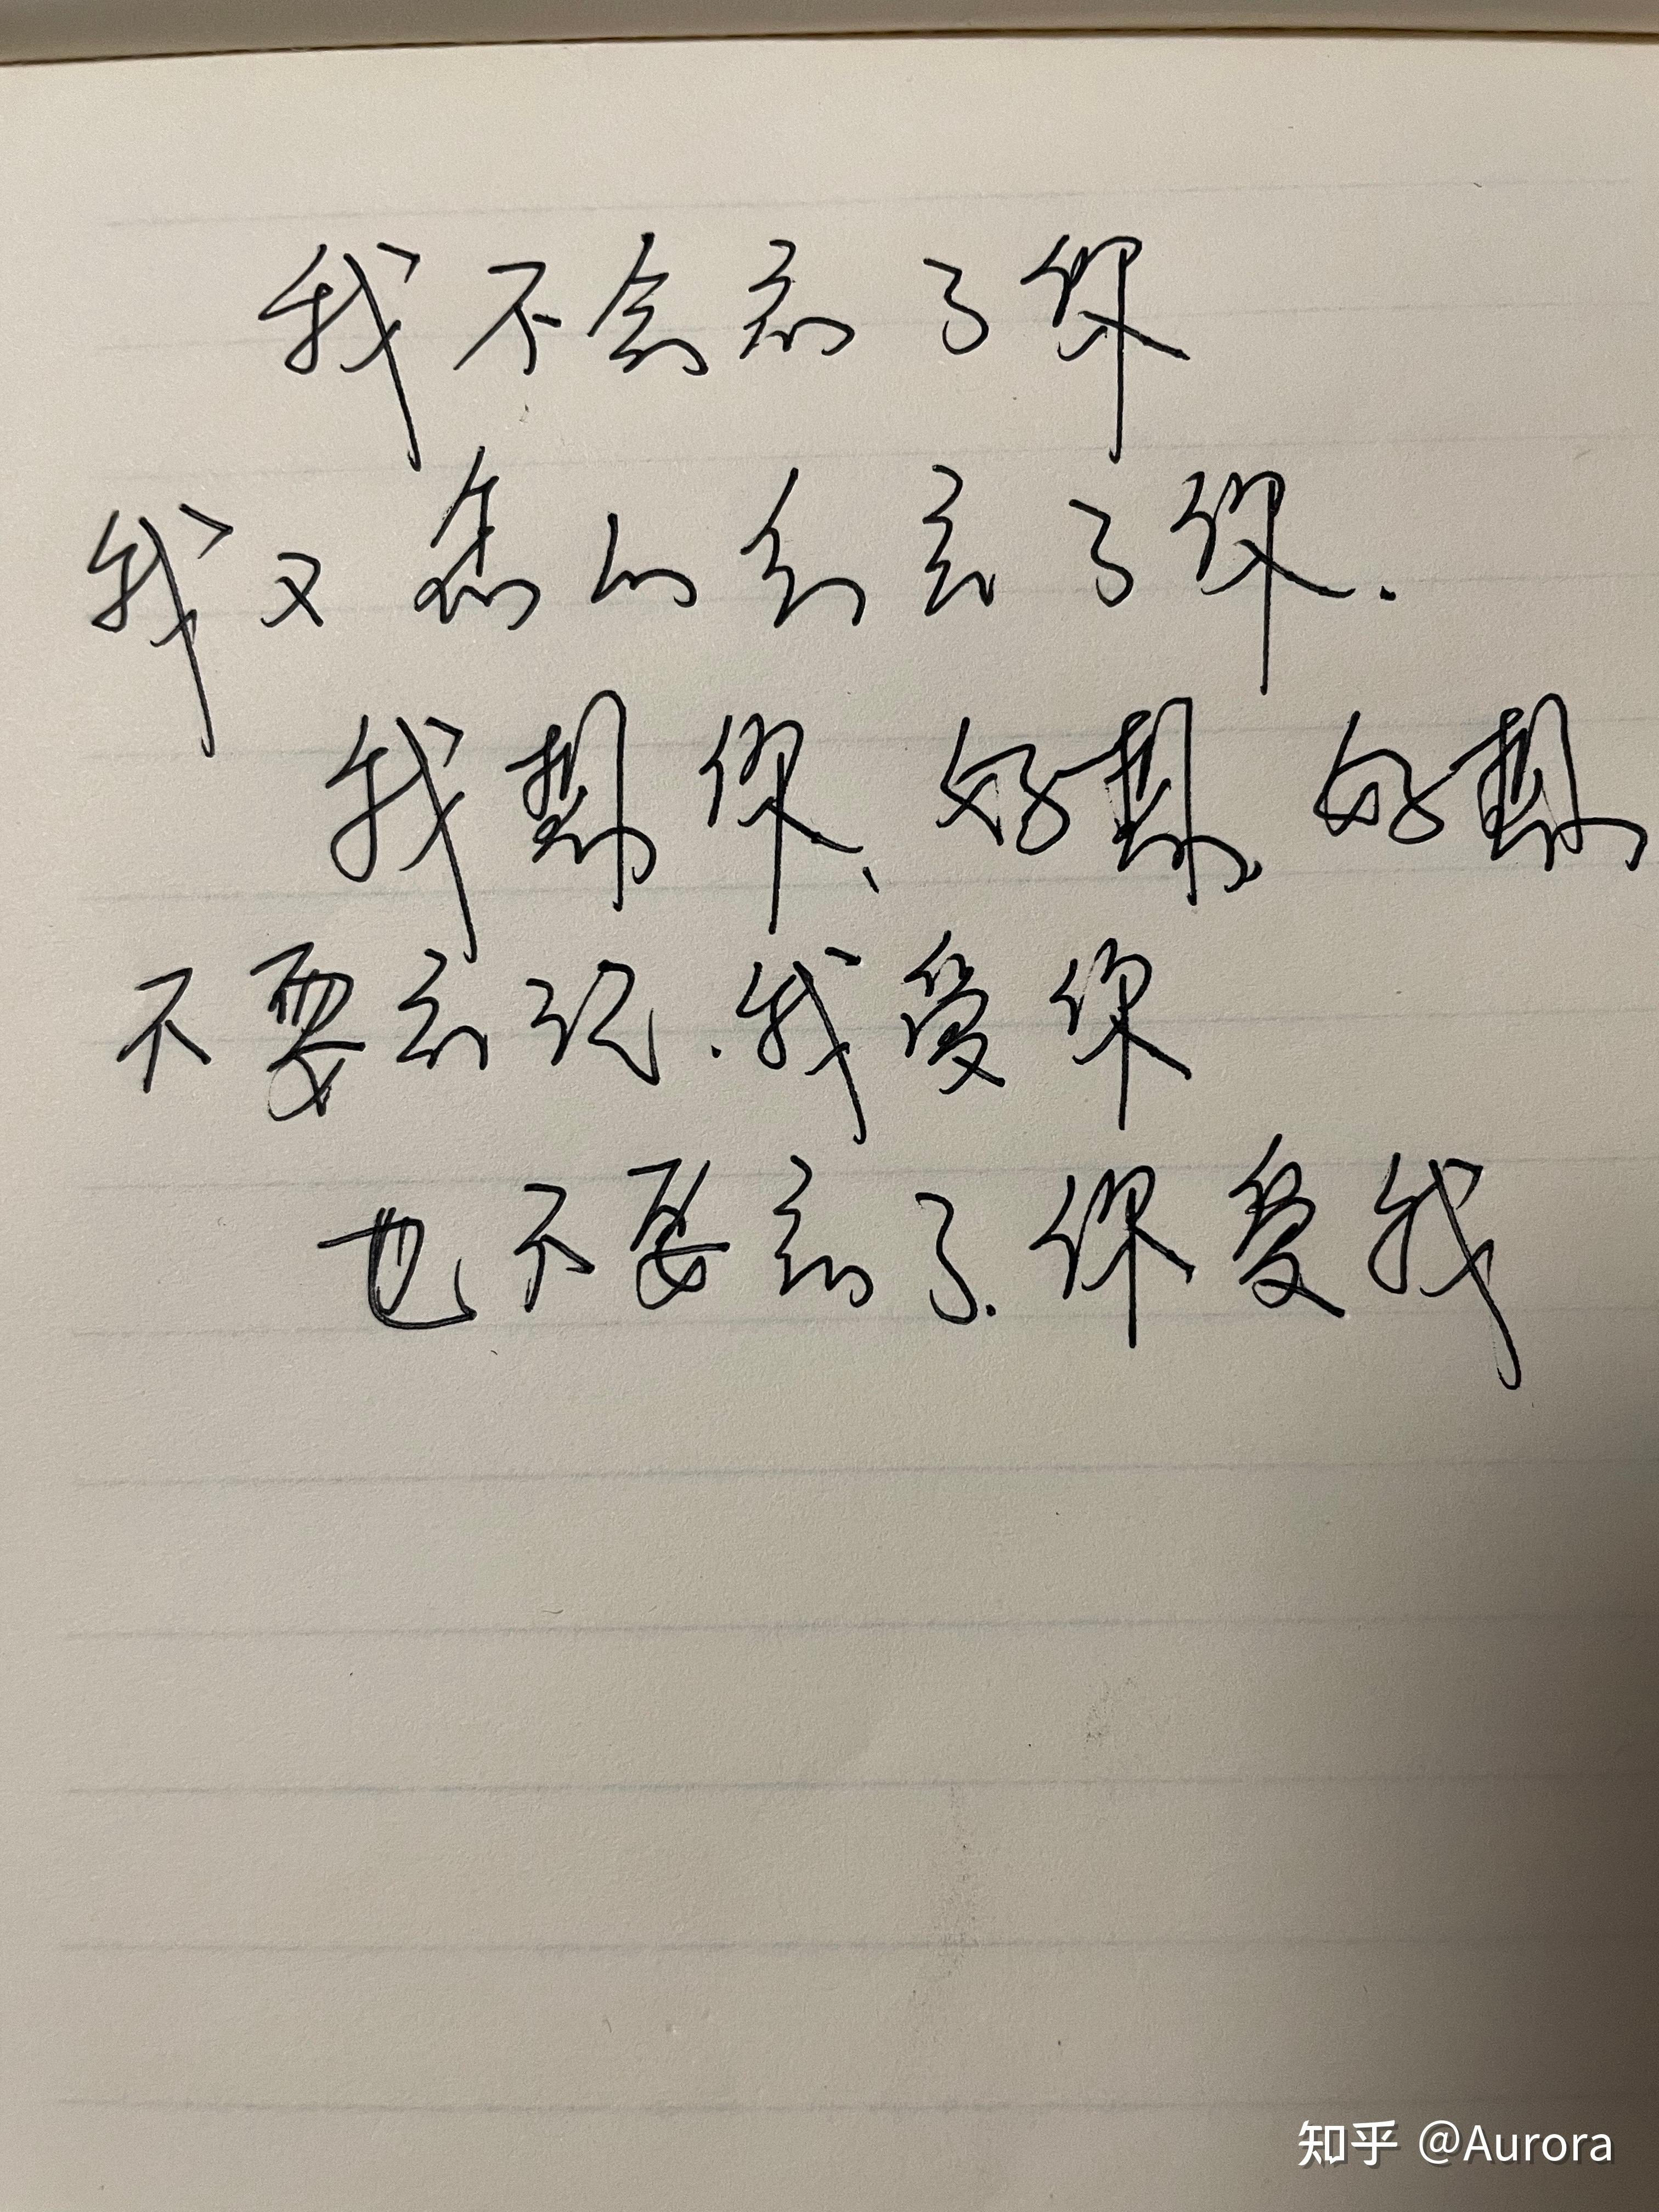 我不会忘了你
我又怎么会忘了你.
我帮你、好帮 好帮
不要忘记.我爱你
也不要忘了.你爱我
知乎 @Aurora